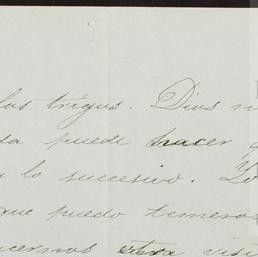 los trigos. Dios n
sa puede hacer
lo sucesivo. Yo
que puedo temeros
cernos otra visi